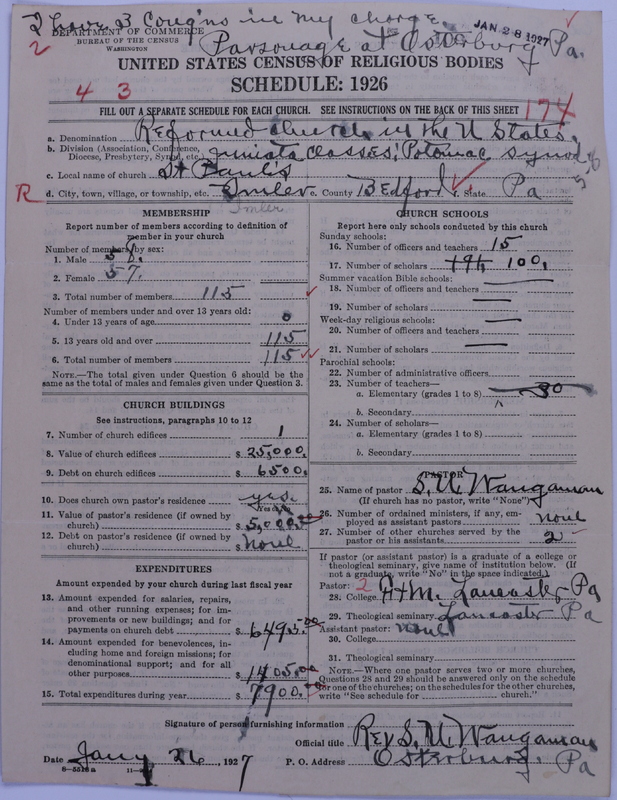 I have 3 Cong'ns in my charge.
JAN 28 1927
DEPARTMENT OF COMMERCE
BUREAU OF THE CENSUS
WASHINGTON
Parsonage at Osterburg Pa.
2
UNITED STATES CENSUS OF RELIGIOUS BODIES
SCHEDULE: 1926
4 3
FILL OUT A SEPARATE SCHEDULE FOR EACH CHURCH. SEE INSTRUCTIONS ON THE BACK OF THIS SHEET
174
a. Denomination Reformed church in the U States.
b. Division (Association, Conference, Diocese, Presbytery, Synod, etc.) Juniata classes; Potomac synod
c. Local name of church St Paul's
R d. City, town, village, or township, etc. Imler e. County Bedford f. State Pa
Imler
MEMBERSHIP
Report number of members according to definition of
member in your church
Number of members by sex:
1. Male 58.
2. Female 57.
3. Total number of members 115
Number of members under and over 13 years old:
4. Under 13 years of age 0
5. 13 years old and over 115
6. Total number of members 115
NOTE.—The total given under Question 6 should be the
same as the total of males and females given under Question 3.
CHURCH BUILDINGS
See instructions, paragraphs 10 to 12
7. Number of church edifices 1
8. Value of church edifices $ 25,000.
9. Debt on church edifices $ 6500.
10. Does church own pastor's residence yes.
Yes or No
11. Value of pastor's residence (if owned by
church) $ 5,000.00
12. Debt on pastor's residence (if owned by
church) $ None
EXPENDITURES
Amount expended by your church during last fiscal year
13. Amount expended for salaries, repairs,
and other running expenses; for im-
provements or new buildings; and for
payments on church debt $ 6495.00
14. Amount expended for benevolences, in-
cluding home and foreign missions; for
denominational support; and for all
other purposes $ 1405.00
15. Total expenditures during year $ 7900.00
CHURCH SCHOOLS
Report here only schools conducted by this church
Sunday schools:
16. Number of officers and teachers 15
17. Number of scholars 100.
Summer vacation Bible schools:
18. Number of officers and teachers
19. Number of scholars
Week-day religious schools:
20. Number of officers and teachers
21. Number of scholars
Parochial schools:
22. Number of administrative officers
23. Number of teachers—
a. Elementary (grades 1 to 8)
b. Secondary
24. Number of scholars—
a. Elementary (grades 1 to 8)
b. Secondary
PASTOR
25. Name of pastor S. U. Waugaman
(If church has no pastor, write "None")
26. Number of ordained ministers, if any, em-
ployed as assistant pastors None
27. Number of other churches served by the
pastor or his assistants 2
If pastor (or assistant pastor) is a graduate of a college or
theological seminary, give name of institution below. (If
not a graduate, write "No" in the space indicated.)
Pastor: 2
28. College F+M. Lancaster Pa
29. Theological seminary Lancaster Pa
Assistant pastor: None
30. College
31. Theological seminary
NOTE.—Where one pastor serves two or more churches,
Questions 28 and 29 should be answered only on the schedule
for one of the churches; on the schedules for the other churches,
write "See schedule for church."
Signature of person furnishing information
Official title Rev S. U. Waugaman
Date Jany 26, 1927 P. O. Address Osterburg. Pa